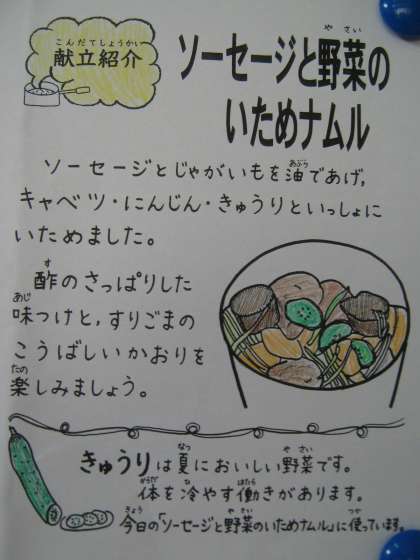 こんだてしょうかい
献立紹介
ソーセージと野菜の
やさい
いためナムル
ソーセージとじゃがいもを油であげ,
あぶら
キャベツ・にんじん・きゅうりといっしょに
いためました。
す
酢のさっぱりした
あじ
味つけと,すりごまの
こうばしいかおりを
たの
楽しみましょう。
なつ やさい
きゅうりは夏においしい野菜です。
からだ ひ はたら
体を冷やす働きがあります。
きょう やさい つか
今日の「ソーセージと野菜のいためナムル」に使っています。